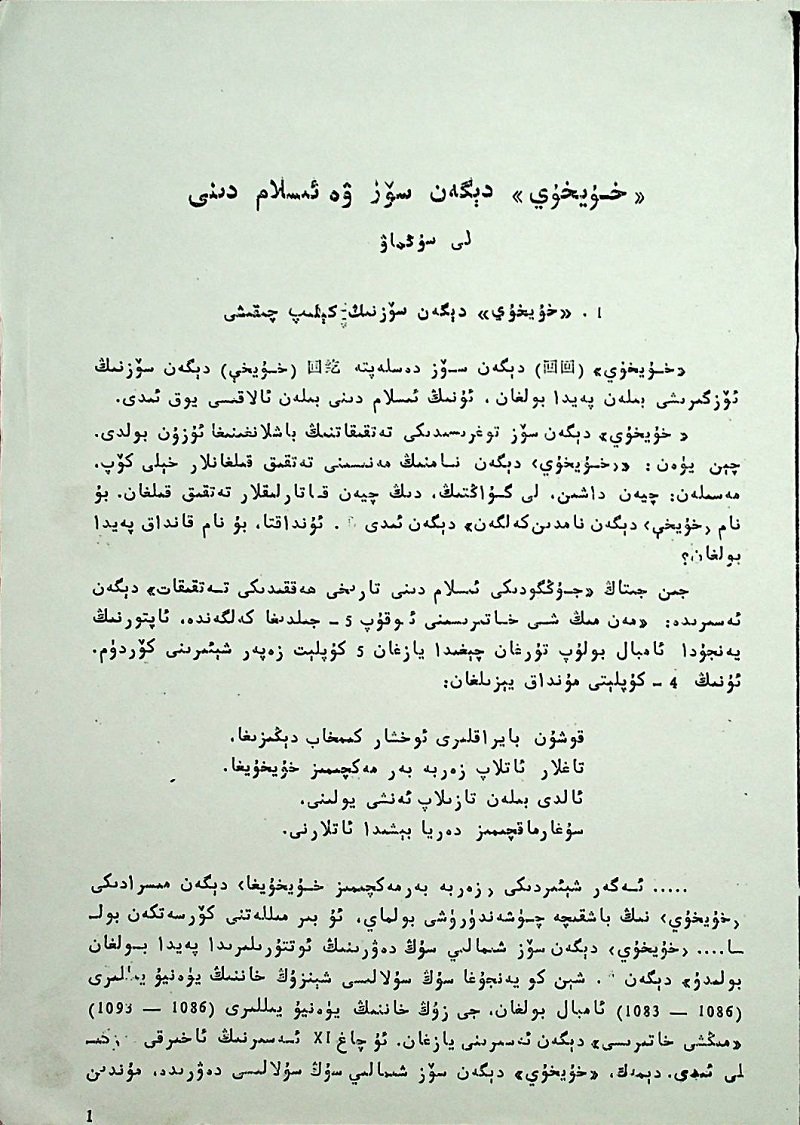 «خۇيخۇي» دېگەن سۆز ۋە ئىسلام دىنى
لى سۇڭماۋ
1 . «خۇيخۇي» دېگەن سۆزنىڭ كېلىپ چىقىشى
«خۇيخۇي» (回回) دېگەن سۆز دەسلەپتە 回訖 (خۇيخې) دېگەن سۆزنىڭ
ئۆزگىرىشى بىلەن پەيدا بولغان، ئۇنىڭ ئىسلام دىنى بىلەن ئالاقىسى يوق ئىدى.
«خۇيخۇي» دېگەن سۆز توغرىسىدىكى تەتقىقاتنىڭ باشلانغىنىغا ئۇزۇن بولدى.
چېن يۈەن: «‹خۇيخۇي› دېگەن نامنىڭ مەنىسىنى تەتقىق قىلغانلار خېلى كۆپ،
مەسىلەن: چيەن داشىن، لى گۇاڭتىڭ، دىڭ چيەن قاتارلىقلار تەتقىق قىلغان. بۇ
نام ‹خۇيخې› دېگەن نامدىن كەلگەن» دېگەن ئىدى . ئۇنداقتا، بۇ نام قانداق پەيدا
بولغان؟
جىن جىتاڭ «جۇڭگودىكى ئىسلام دىنى تارىخى ھەققىدىكى تەتقىقات» دېگەن
ئەسىرىدە: «مەن مىڭ شى خاتىرىسىنى ئوقۇپ 5 ـ جىلدىغا كەلگەندە، ئاپتورنىڭ
يەنجۇدا ئامبال بولۇپ تۇرغان چېغىدا يازغان 5 كۇپلېت زەپەر شېئىرىنى كۆردۈم.
ئۇنىڭ 4 ـ كۇپلېتى مۇنداق يېزىلغان:
قوشۇن بايراقلىرى ئوخشار كىمخاب دېڭىزىغا،
تاغلار ئاتلاپ زەربە بەر مەكچىمىز خۇيخۇيغا.
ئالدى بىلەن تازىلاپ ئەنشى يولىنى،
سۇغارماقچىمىز دەريا بېشىدا ئاتلارنى.
..... ئەگەر شېئىردىكى ‹زەربە بەرمەكچىمىز خۇيخۇيغا› دېگەن مىسرادىكى
‹خۇيخۇي› نىڭ باشقىچە چۈشەندۈرۈشى بولماي، ئۇ بىر مىللەتنى كۆرسەتكەن بول‍ـ
ـسا.... ‹خۇيخۇي› دېگەن سۆز شىمالىي سۇڭ دەۋرىنىڭ ئوتتۇرىلىرىدا پەيدا بولغان
بولىدۇ» دېگەن . شېن كو يەنجۇغا سۇڭ سۇلالىسى شېنزۇڭ خاننىڭ يۈەنيۇ يىللىرى
(1083 — 1086) ئامبال بولغان، جى زۇڭ خاننىڭ يۈەنيۇ يىللىرى (1086 — 1093)
«مىڭشى خاتىرىسى» دېگەن ئەسىرىنى يازغان. ئۇ چاغ XI ئەسىرنىڭ ئاخىرقى
لى ئىدى. دېمەك، «خۇيخۇي» دېگەن سۆز شىمالىي سۇڭ سۇلالىسى دەۋرىدە، مۇندىن
1